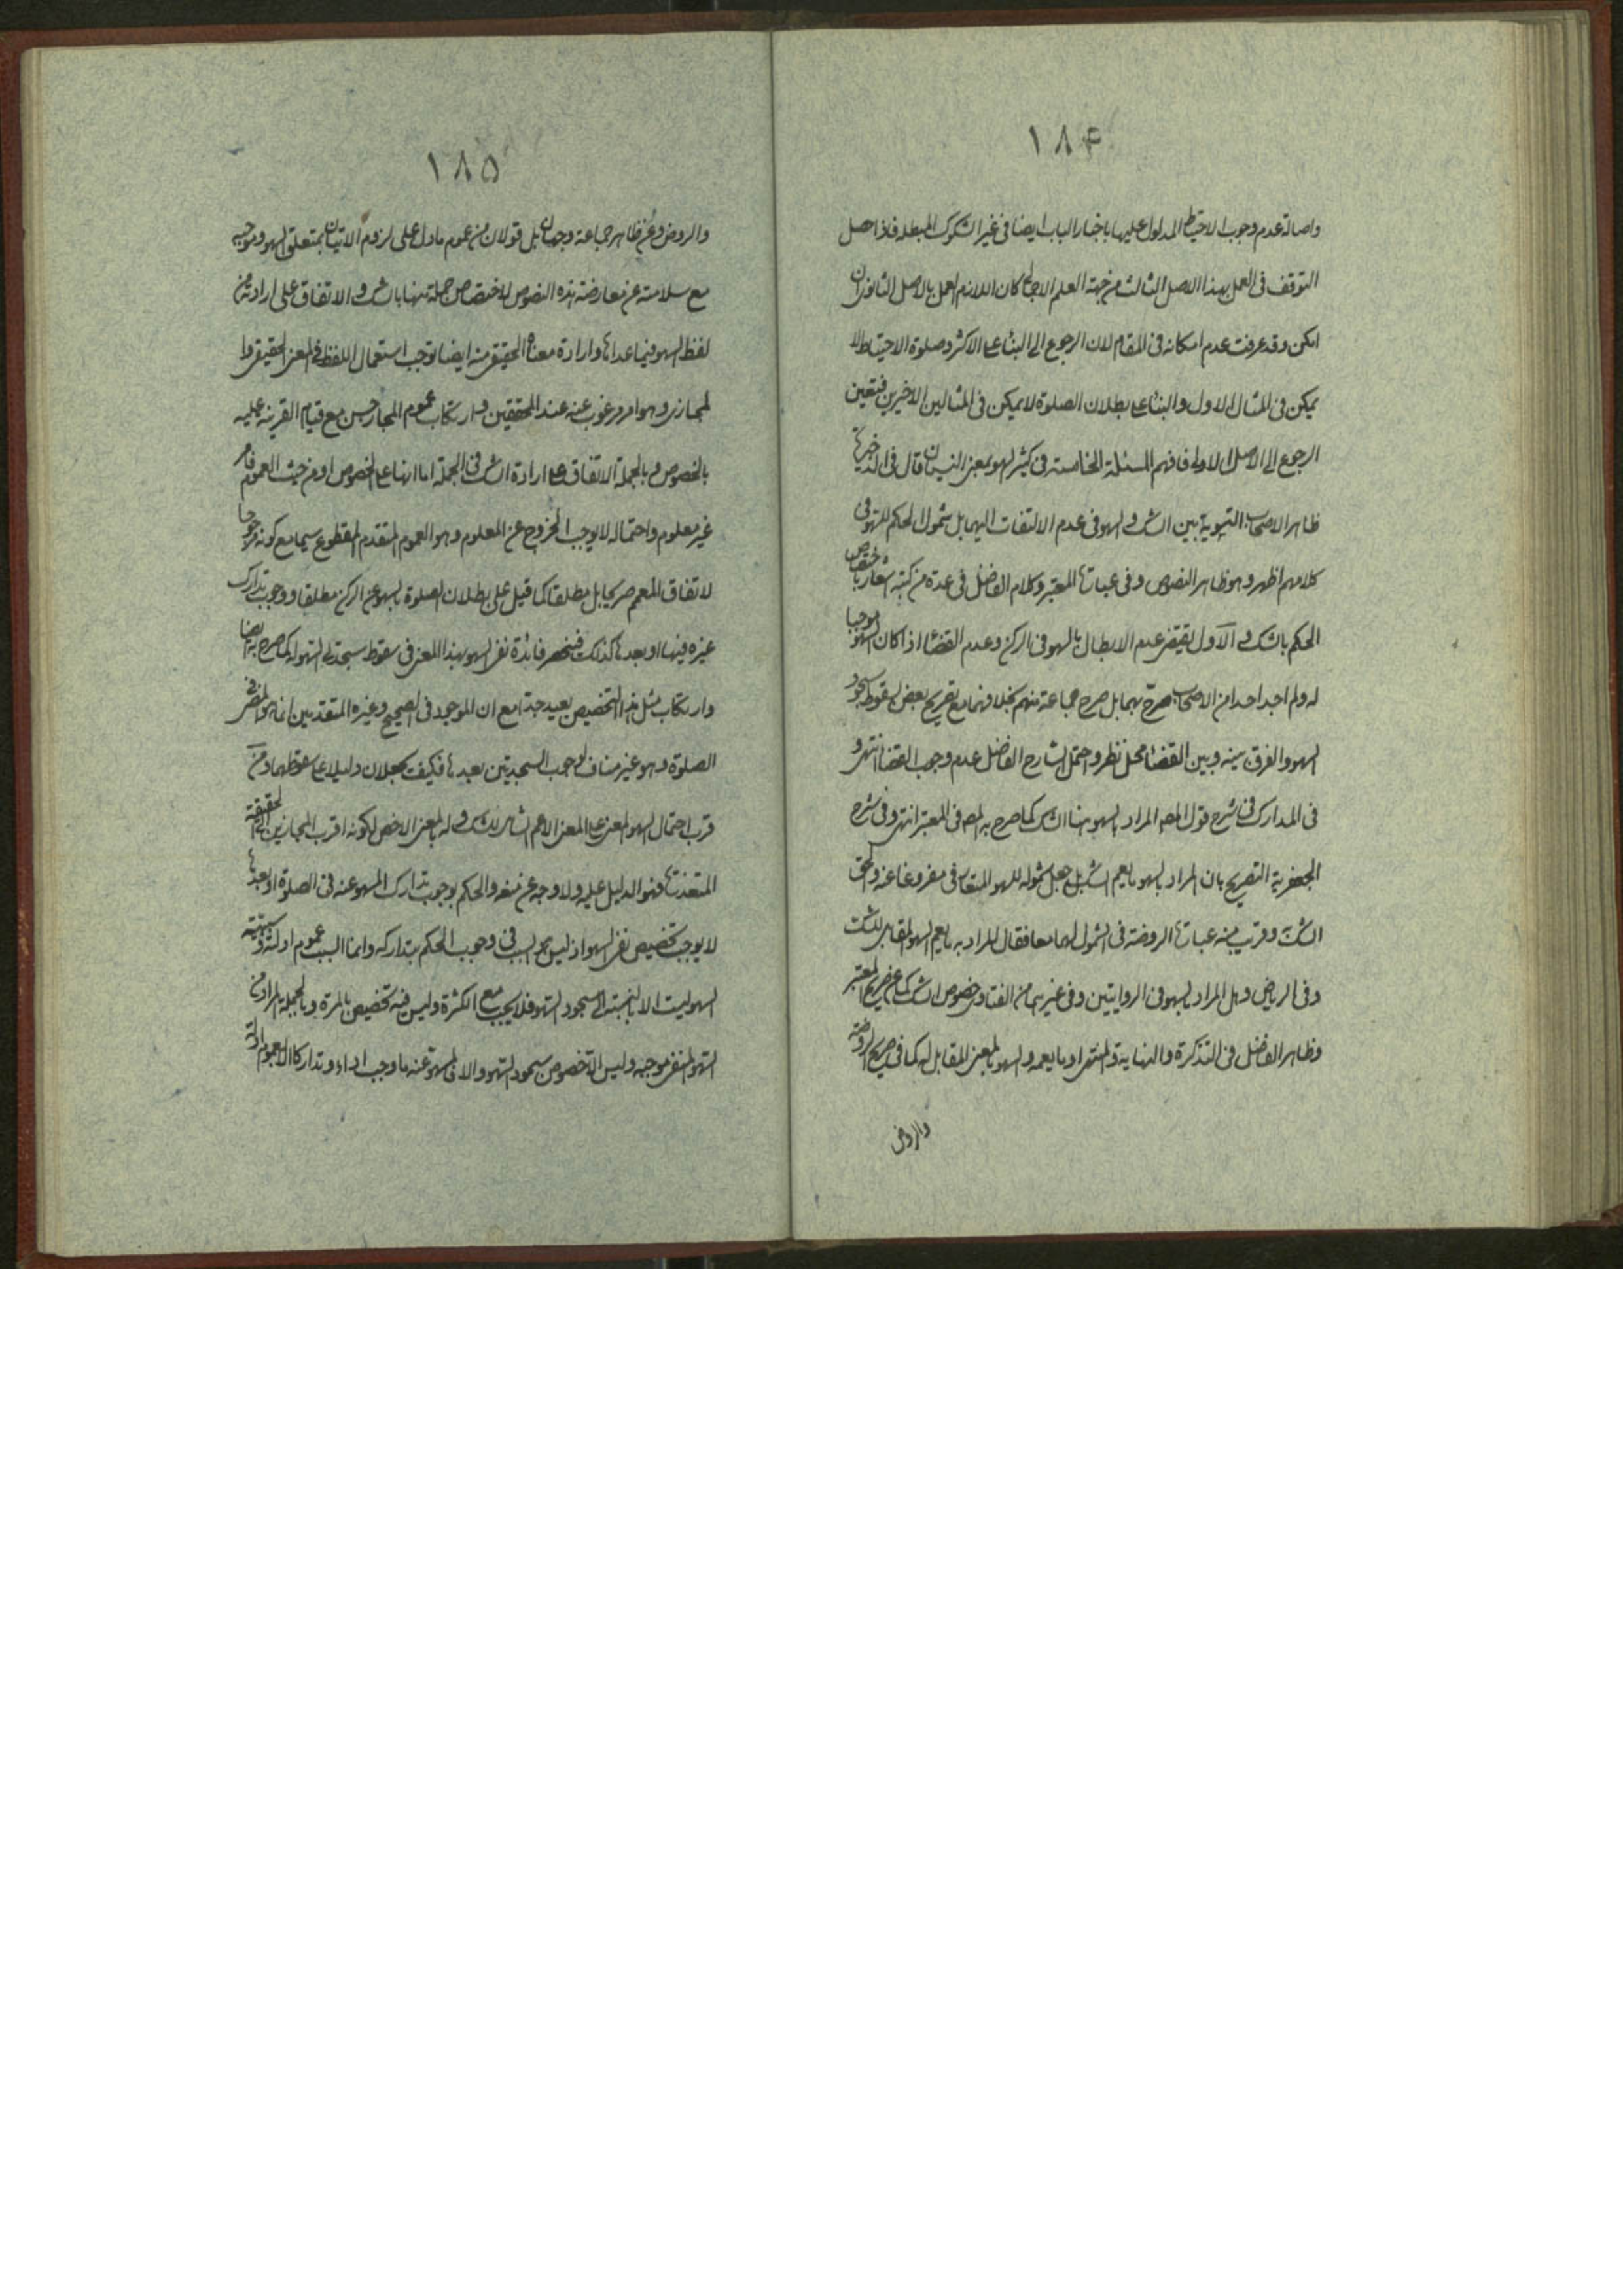 ١٨۴
واصالة عدم وجوب الاحتياط المدلول عليها باخبار الباب ايضا فى غير الشكوك المبطله فاذا حصل
التوقف فى العمل بهذا الاصل الثالث من جهة العلم الاجمالى كان اللازم العمل بالاصل الثانوى ان
امكن وقد عرفت عدم امكانه فى المقام لان الرجوع الى البناء على الاكثر وصلوة الاحتياط لا
يمكن فى المثال الاول والبناء على بطلان الصلوة لا يمكن فى المثالين الاخيرين فتعين
الرجوع الى الاصل الاولى فافهم المسئلة الخامسة فى كثير السهو بمعنى النسيان قال فى الذخيرة
ظاهر الاصحاب التسوية بين الشك والسهو فى عدم الالتفات اليهما بل شمول الحكم للسهو فى
كلامهم اظهر وهو ظاهر النصوص وفى عبارة المعتبر وكلام الفاضل فى عدة من كتبه اشعار باختصاص
الحكم بالشك والاول يقتضى عدم الابطال بالسهو فى الركن وعدم القضاء اذا كان السهو موجبا
له ولم اجد احدا من الاصحاب صرح بهما بل صرح جماعة منهم بخلافهما مع تصريح بعض بسقوط سجود
السهو والفرق بينه وبين القضاء محل نظر واحتمل الشارح الفاضل عدم وجوب القضاء انتهى و
فى المدارك فى شرح قول المصه المراد بالسهو هنا الشك كما صرح به المصه فى المعتبر انتهى وفى شرح
الجعفرية التصريح بان المراد بالسهو ما يعم الشك بل جعل شموله للسهو المتعارف مفروغا عنه والحق
الشك وقريب منه عبارة الروضة فى الشمول لهما معا فقال المراد به ما يعم السهو المقابل للشك
وفى الرياض وهل المراد بالسهو فى الروايتين وفى غيرهما من الفتاوى خصوص الشك كما عن صريح المعتبر
وظاهر الفاضل فى التذكرة والنهاية والمنتهى او ما يعمه والسهو بالمعنى المقابل له كما فى صريح الروضة
والروض
١٨۵
والروض وعن ظاهر جماعة وجهان بل قولان من عموم ما دل على لزوم الاتيان بمتعلق السهو وموجبه
مع سلامته عن معارضة هذه النصوص لاختصاص جملة منها بالشك والاتفاق على ارادته من
لفظ السهو فيما عداها وارادة معناه الحقيقى منه ايضا توجب استعمال اللفظ فى المعنى الحقيقى وا
لمجازى وهو امر مرغوب عنه عند المحققين وارتكاب عموم المجاز حسن مع قيام القرينة عليه
بالخصوص وبالجملة الاتفاق على ارادة الشك فى الجملة اما انها على الخصوص او من حيث العموم فامر
غير معلوم واحتماله لا يوجب الخروج عن المعلوم وهو العموم المتقدم المقطوع سيما مع كونه مرجوحا
لاتفاق المعمم صريحا بل مطلقا كما قيل على بطلان الصلوة بالسهو عن الركن مطلقا ووجوب تدارك
غيره فيها او بعدها كذلك فتنحصر فائدة نفى السهو بهذا المعنى فى سقوط سجدتى السهو له كما صرح به ايضا
وارتكاب مثل هذا التخصيص بعيد جدا مع ان الموجود فى الصحيح وغيره المتقدمين انما هو المضى فى
الصلوة وهو غير مناف لوجوب السجدتين بعدها فكيف يجعلان دليلا على سقوطهما ومن
قرب احتمال السهو لمعنى على المعنى الاعم الشامل للشك وله بالمعنى الاخص لكونه اقرب المجازين الى الحقيقة
المتعذرة فهو الدليل عليه ولا وجه عن منعه والحكم بوجوب تدارك المسهو عنه فى الصلوة او بعدها
لا يوجب تخصيص نفى السهو اذ ليس هو السبب فى وجوب الحكم بتداركه وانما السبب عموم ادلته وسببية
السهو ليست الا بالنسبة الى سجود السهو فلا يجب مع الكثرة وليس فيه تخصيص بالمرة وبالجملة المراد من
السهو المنفى موجبه وليس الا خصوص سجود السهو والا فالمسهو عنه ما وجب اداء وتداركا الا بعموم ادلة